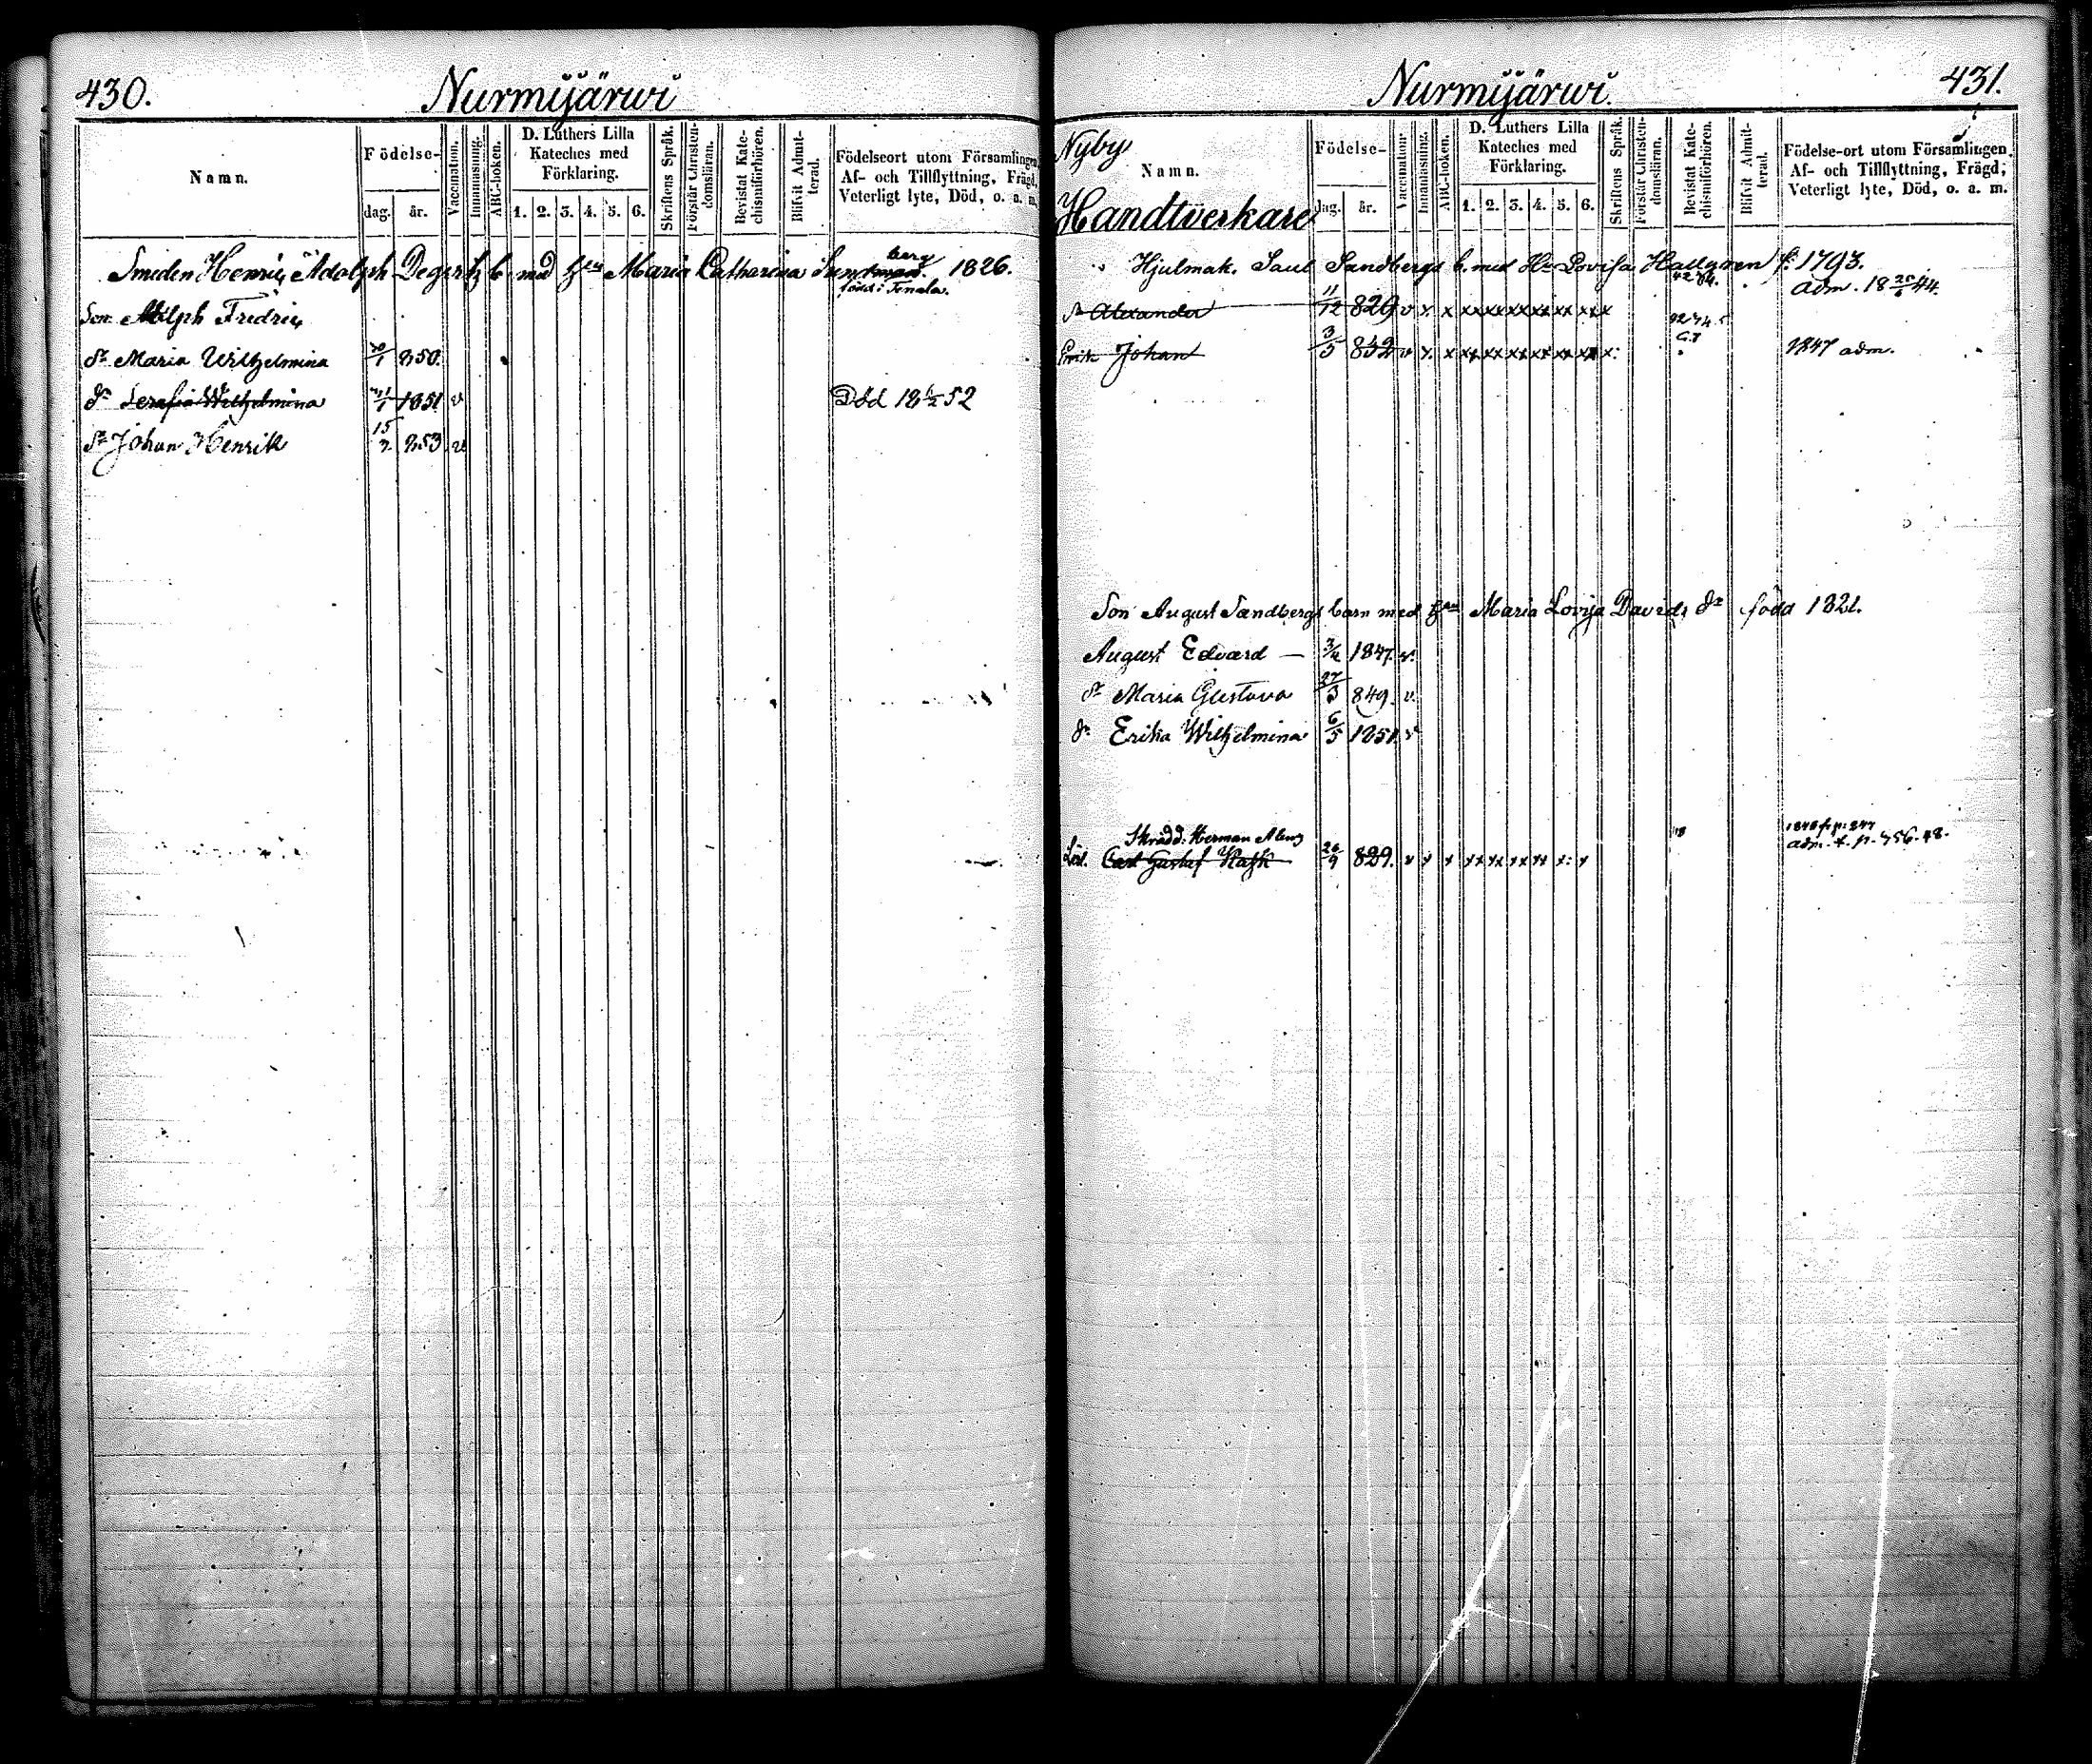 430.
Nurmijärwi
Namn.
Födelse-
dag. år.
Vaccination.
Innanläsning.
ABC-boken.
D. Luthers Lilla Kateches med Förklaring.
1. 2. 3. 4. 5. 6.
Skriftens Språk.
Förstår Christen-domsläran.
Bevistat Kate-chismiförhören.
Blifvit Admit-terad.
Födelseort utom Församlingen,
Af- och Tillflyttning, Frägd,
Veterligt lyte, Död, o. a. m.
Smeden Henric Adolph Degerts b. med Hu Maria Catharina Sundman berg 1826.
född i Tenala.
Son Adolph Fridric
Dr Maria Wilhelmina 850.
dr Serafia Wilhelmina 1851 v Död 18 52
Sn Johan Henrik 15 853 v
Nurmijärwi.
431.
Nyby
Namn.
Födelse-
dag. år.
Vaccination.
Innanläsning.
ABC-boken.
D. Luthers Lilla Kateches med Förklaring.
1. 2. 3. 4. 5. 6.
Skriftens Språk.
Förstår Christen-domsläran.
Bevistat Kate-chismiförhören.
Blifvit Admit-terad.
Födelse-ort utom Församlingen,
Af- och Tillflyttning, Frägd,
Veterligt lyte, Död, o. a. m.
Handtverkare
Hjulmak. Saul Sandbergs b. med Hu Lovisa Hallgren f. 1793.
Sn Alexander 11/12 829 v x x xx xx xx xx xx xx x adm. 18 44.
Johan 3/5 832 v x x xx xx xx xx xx xx x: 1847 adm.
Son August Sandbergs barn med Hu Maria Lovisa Davids dr född 1821.
August Edvard — 1847. v.
Dr Maria Gustava 27/3 849. v.
dr Erika Wilhelmina 6/5 1851. v
Skrädd. Herman
Carl Gustaf 26/9 829. v x x xx xx xx xx x: x
1848 f. p. 247
adm. f. p. 356. 48.